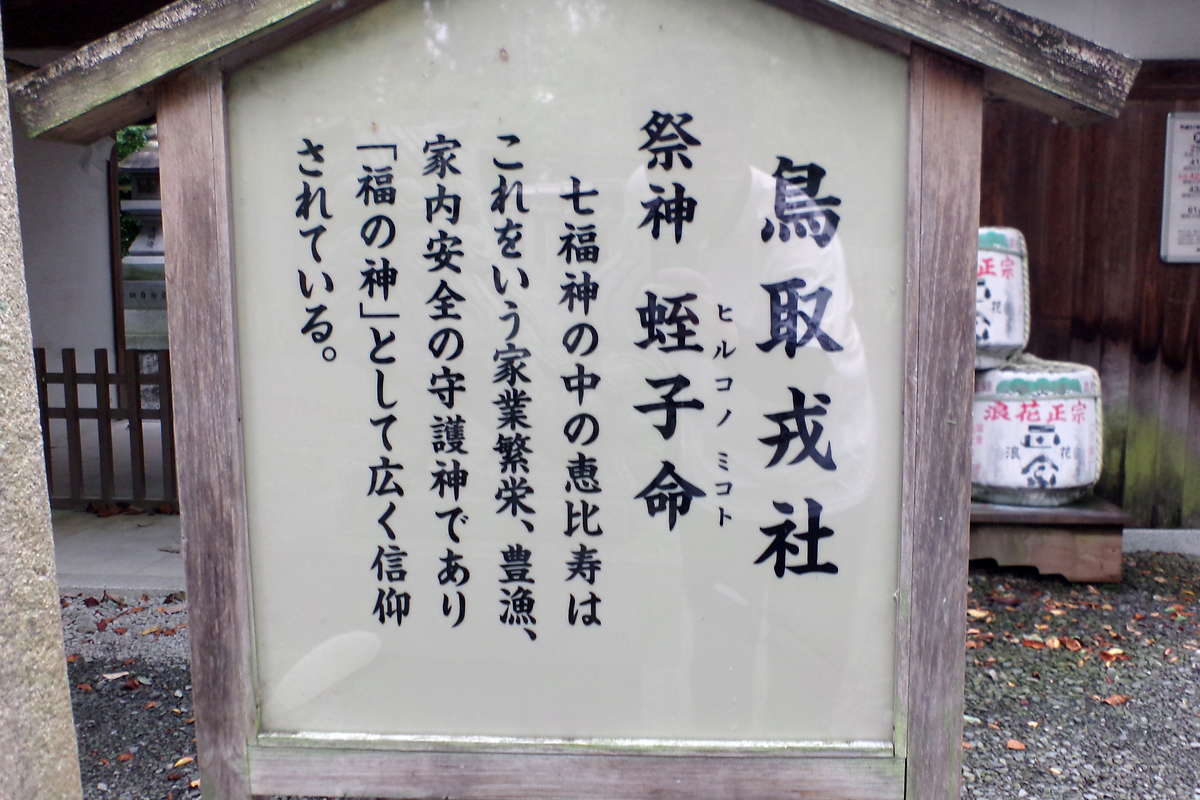 鳥取戎社
祭神 蛭子命
ヒルコノミコト
七福神の中の恵比寿は
これをいう家業繁栄、豊漁、
家内安全の守護神であり
「福の神」として広く信仰
されている。
正宗
花
浪花正宗
浪
花